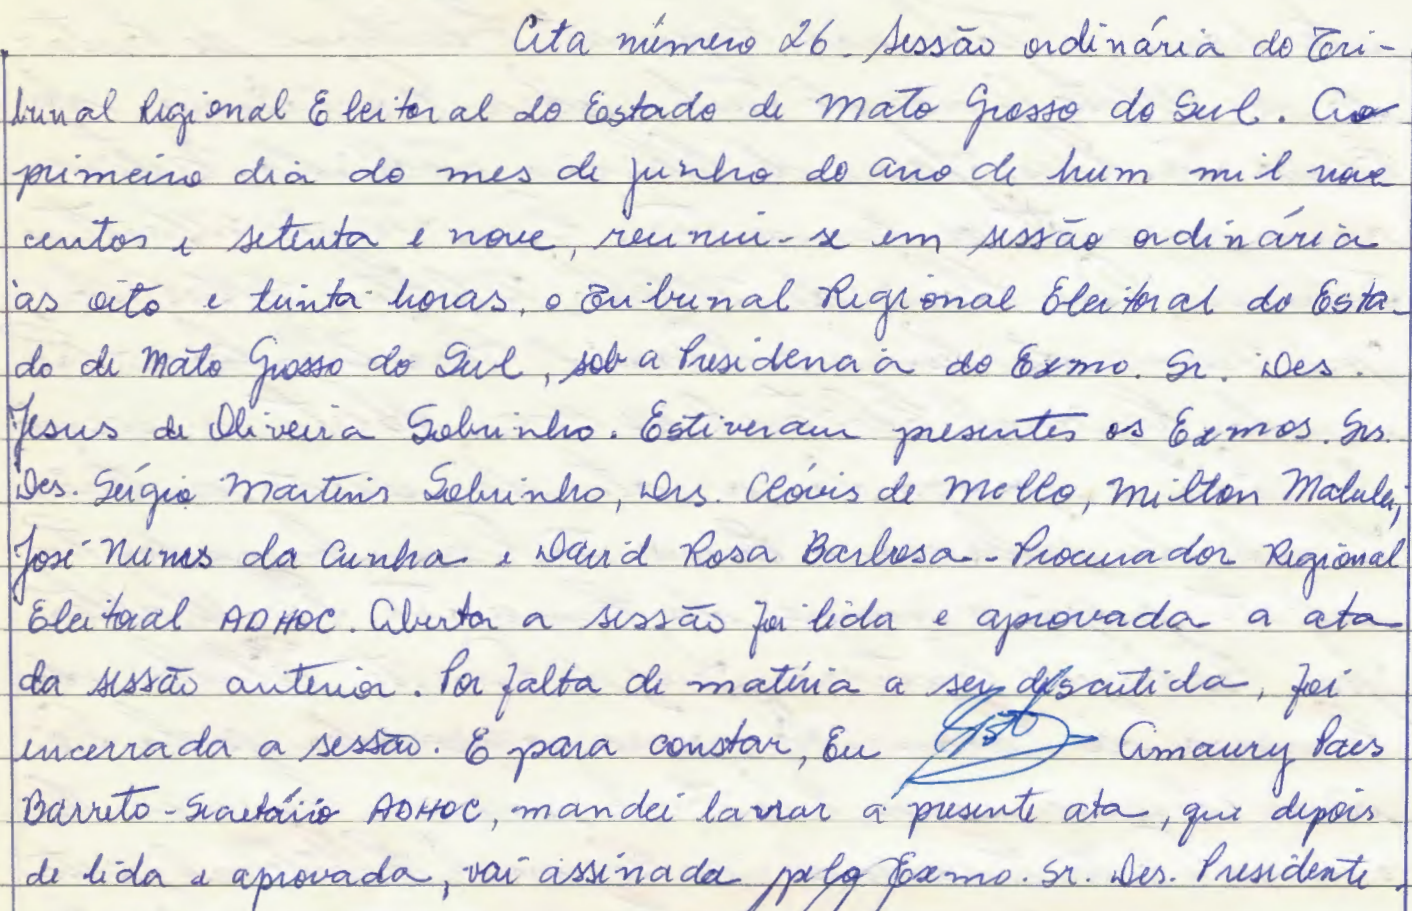 Ata número 26. Sessão ordinária do Tri-
bunal Regional Eleitoral do Estado de Mato Grosso do Sul. Ao
primeiro dia do mes de junho do ano de hum mil nove
centos e setenta e nove, reuniu-se em sessão ordinária
às oito e trinta horas, o Tribunal Regional Eleitoral do Esta-
do de Mato Grosso do Sul, sob a Presidencia do Exmo. Sr. Des.
Jesus de Oliveira Sobrinho. Estiveram presentes os Exmos. Srs.
Des. Sérgio Martins Sobrinho, Drs. Clóvis de Mello, Milton Malulei,
José Nunes da Cunha e David Rosa Barbosa - Procurador Regional
Eleitoral ADHOC. Aberta a sessão foi lida e aprovada a ata
da sessão anterior. Por falta de matéria a ser discutida, foi
encerrada a sessão. E para constar, Eu Amaury Paes
Barreto - Secretário ADHOC, mandei lavrar a presente ata, que depois
de lida e aprovada, vai assinada pelo Exmo. Sr. Des. Presidente